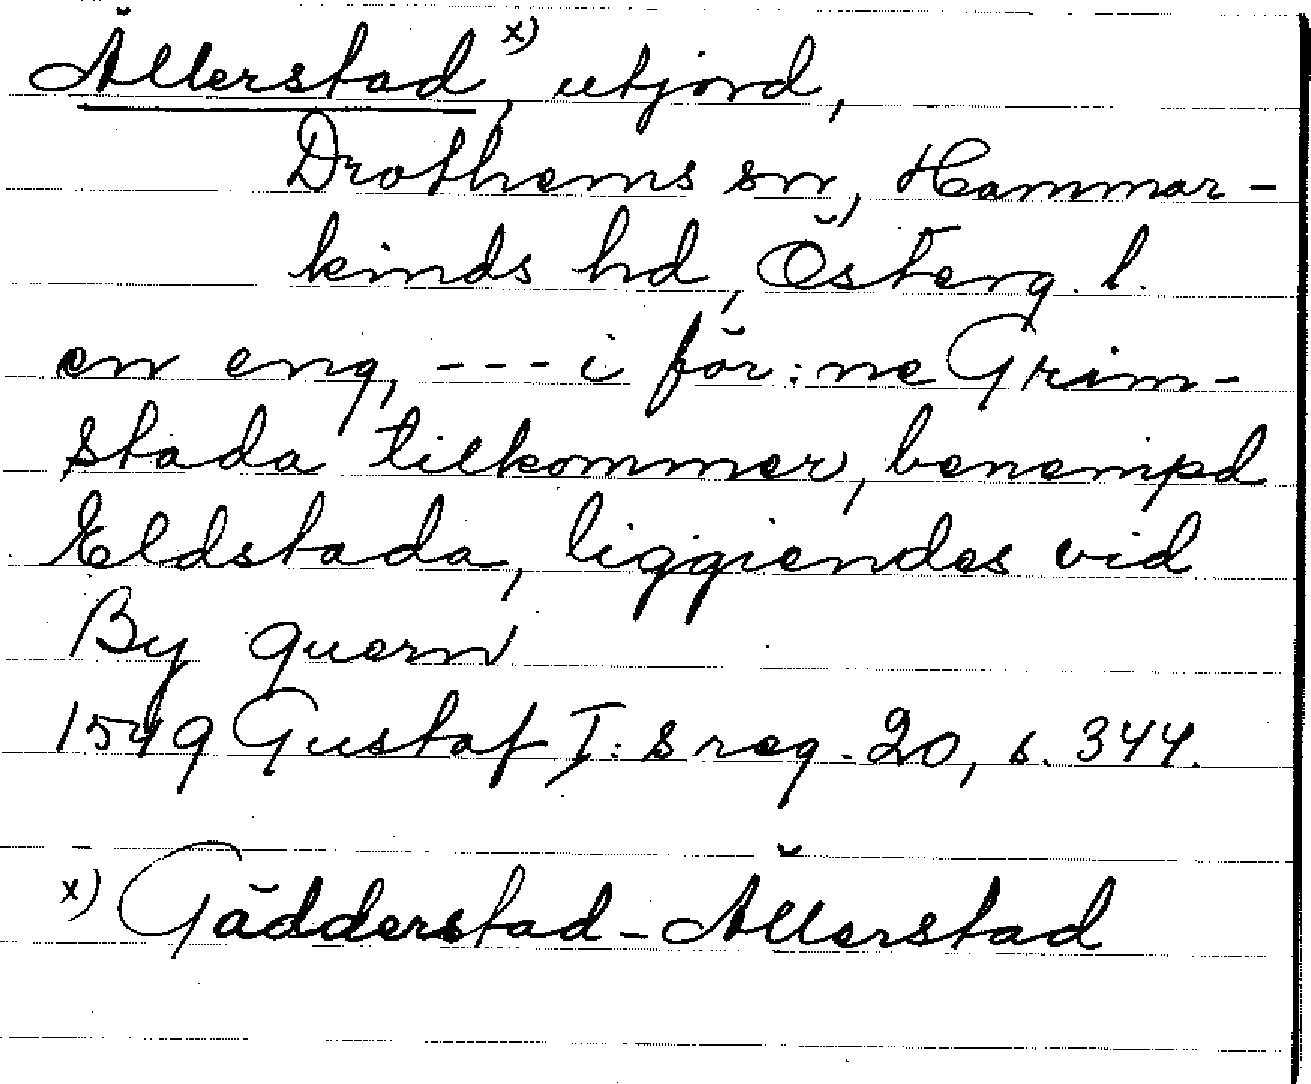 Ällerstad x), utjord,
Drothems sn, Hammar-
kinds hd, Österg. l.
en eng, --- i för:ne Grim-
stada tilkommer, benempd
Eldstada, liggiendes vid
By quern
1549 Gustaf I:s reg. 20, s. 344.
x) Gädderstad-Ällerstad